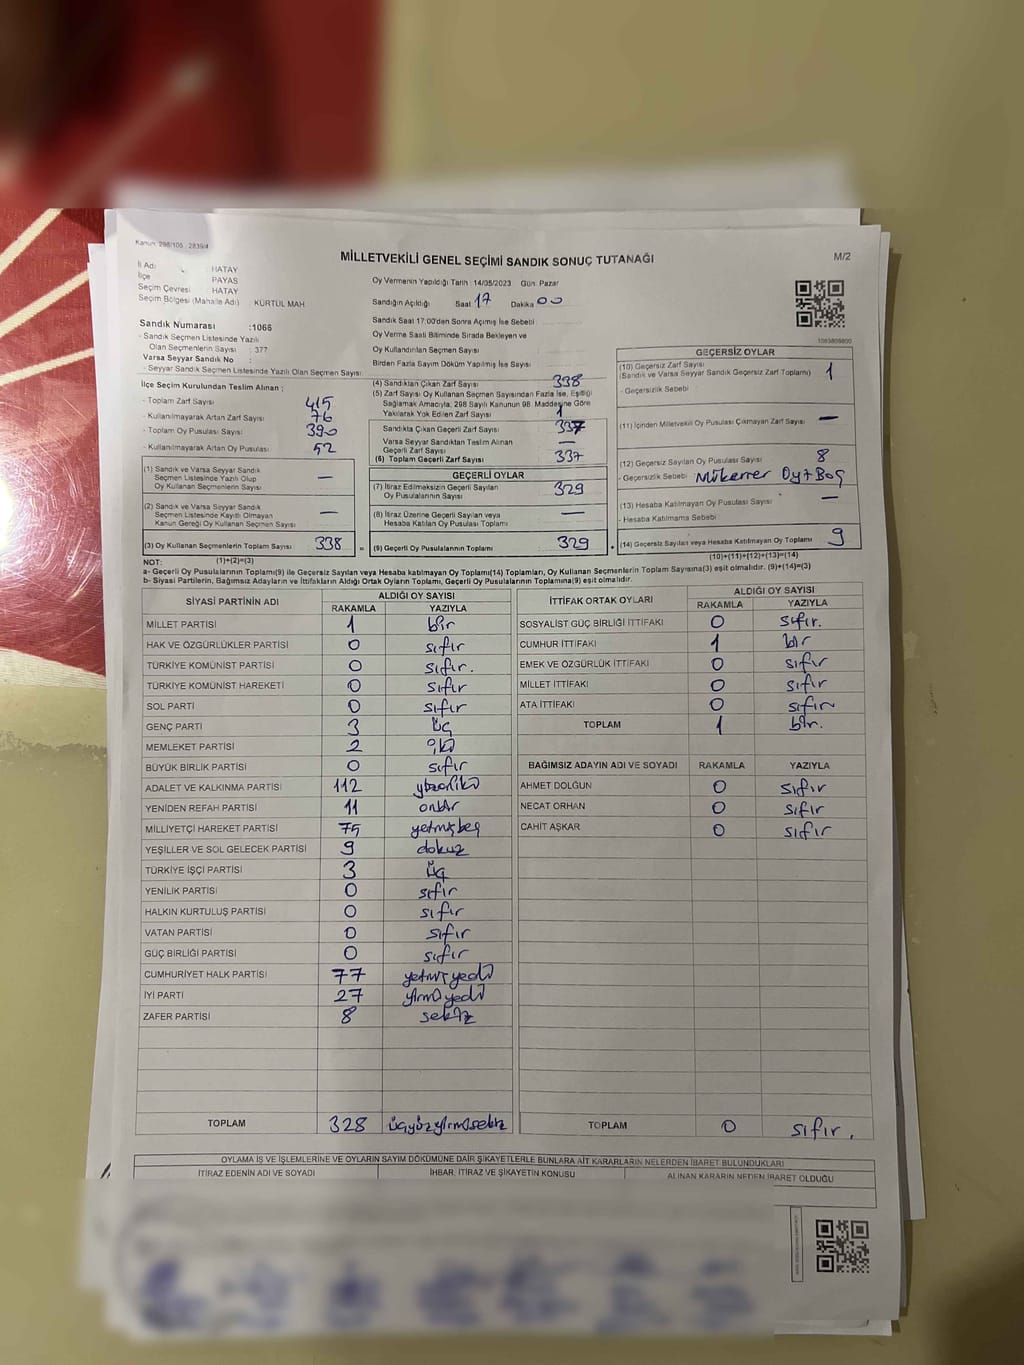 Kanun: 298/105 - 2839/4
MİLLETVEKİLİ GENEL SEÇİMİ SANDIK SONUÇ TUTANAĞI
M/2
İl Adı : HATAY
İlçe : PAYAS
Seçim Çevresi : HATAY
Seçim Bölgesi (Mahalle Adı) : KÜRTÜL MAH
Oy Vermenin Yapıldığı Tarih : 14/05/2023 Gün: Pazar
Sandığın Açıldığı Saat 17 Dakika 00
Sandık Saat 17:00'den Sonra Açılmış İse Sebebi
Oy Verme Saati Bitiminde Sırada Bekleyen ve
Oy Kullandırılan Seçmen Sayısı
Birden Fazla Sayım Döküm Yapılmış İse Sayısı
Sandık Numarası :1066
- Sandık Seçmen Listesinde Yazılı
Olan Seçmenlerin Sayısı : 377
Varsa Seyyar Sandık No :
- Seyyar Sandık Seçmen Listesinde Yazılı Olan Seçmen Sayısı:
İlçe Seçim Kurulundan Teslim Alınan ;
- Toplam Zarf Sayısı 415
- Kullanılmayarak Artan Zarf Sayısı 76
- Toplam Oy Pusulası Sayısı 390
- Kullanılmayarak Artan Oy Pusulası 52
(1) Sandık ve Varsa Seyyar Sandık
Seçmen Listesinde Yazılı Olup
Oy Kullanan Seçmenlerin Sayısı —
(2) Sandık ve Varsa Seyyar Sandık
Seçmen Listesinde Kayıtlı Olmayan
Kanun Gereği Oy Kullanan Seçmen Sayısı —
(3) Oy Kullanan Seçmenlerin Toplam Sayısı 338
(4) Sandıktan Çıkan Zarf Sayısı 338
(5) Zarf Sayısı Oy Kullanan Seçmen Sayısından Fazla İse, Eşitliği
Sağlamak Amacıyla; 298 Sayılı Kanunun 98. Maddesine Göre
Yakılarak Yok Edilen Zarf Sayısı 1
Sandıkta Çıkan Geçerli Zarf Sayısı 337
Varsa Seyyar Sandıktan Teslim Alınan
Geçerli Zarf Sayısı —
(6) Toplam Geçerli Zarf Sayısı 337
GEÇERLİ OYLAR
(7) İtiraz Edilmeksizin Geçerli Sayılan
Oy Pusulalarının Sayısı 329
(8) İtiraz Üzerine Geçerli Sayılan veya
Hesaba Katılan Oy Pusulası Toplamı —
(9) Geçerli Oy Pusulalarının Toplamı 329
1083808800
GEÇERSİZ OYLAR
(10) Geçersiz Zarf Sayısı
(Sandık ve Varsa Seyyar Sandık Geçersiz Zarf Toplamı) 1
- Geçersizlik Sebebi
(11) İçinden Milletvekili Oy Pusulası Çıkmayan Zarf Sayısı —
(12) Geçersiz Sayılan Oy Pusulası Sayısı 8
- Geçersizlik Sebebi Mükerrer Oy+Boş
(13) Hesaba Katılmayan Oy Pusulası Sayısı —
- Hesaba Katılmama Sebebi
(14) Geçersiz Sayılan veya Hesaba Katılmayan Oy Toplamı 9
NOT: (1)+(2)=(3)
(10)+(11)+(12)+(13)=(14)
a- Geçerli Oy Pusulalarının Toplamı(9) ile Geçersiz Sayılan veya Hesaba katılmayan Oy Toplamı(14) Toplamları, Oy Kullanan Seçmenlerin Toplam Sayısına(3) eşit olmalıdır. (9)+(14)=(3)
b- Siyasi Partilerin, Bağımsız Adayların ve İttifakların Aldığı Ortak Oyların Toplamı, Geçerli Oy Pusulalarının Toplamına(9) eşit olmalıdır.
SİYASİ PARTİNİN ADI ALDIĞI OY SAYISI
RAKAMLA YAZIYLA
MİLLET PARTİSİ 1 bir
HAK VE ÖZGÜRLÜKLER PARTİSİ 0 sıfır
TÜRKİYE KOMÜNİST PARTİSİ 0 sıfır.
TÜRKİYE KOMÜNİST HAREKETİ 0 sıfır
SOL PARTİ 0 sıfır
GENÇ PARTİ 3 üç
MEMLEKET PARTİSİ 2 iki
BÜYÜK BİRLİK PARTİSİ 0 sıfır
ADALET VE KALKINMA PARTİSİ 112 yüzoniki
YENİDEN REFAH PARTİSİ 11 onbir
MİLLİYETÇİ HAREKET PARTİSİ 75 yetmişbeş
YEŞİLLER VE SOL GELECEK PARTİSİ 9 dokuz
TÜRKİYE İŞÇİ PARTİSİ 3 üç
YENİLİK PARTİSİ 0 sıfır
HALKIN KURTULUŞ PARTİSİ 0 sıfır
VATAN PARTİSİ 0 sıfır
GÜÇ BİRLİĞİ PARTİSİ 0 sıfır
CUMHURİYET HALK PARTİSİ 77 yetmişyedi
İYİ PARTİ 27 yirmiyedi
ZAFER PARTİSİ 8 sekiz
TOPLAM 328 üçyüzyirmisekiz
İTTİFAK ORTAK OYLARI ALDIĞI OY SAYISI
RAKAMLA YAZIYLA
SOSYALİST GÜÇ BİRLİĞİ İTTİFAKI 0 sıfır.
CUMHUR İTTİFAKI 1 bir
EMEK VE ÖZGÜRLÜK İTTİFAKI 0 sıfır
MİLLET İTTİFAKI 0 sıfır
ATA İTTİFAKI 0 sıfır
TOPLAM 1 bir.
BAĞIMSIZ ADAYIN ADI VE SOYADI RAKAMLA YAZIYLA
AHMET DOLĞUN 0 sıfır
NECAT ORHAN 0 sıfır
CAHİT AŞKAR 0 sıfır
TOPLAM 0 sıfır.
OYLAMA İŞ VE İŞLEMLERİNE VE OYLARIN SAYIM DÖKÜMÜNE DAİR ŞİKAYETLERLE BUNLARA AİT KARARLARIN NELERDEN İBARET BULUNDUKLARI
İTİRAZ EDENİN ADI VE SOYADI İHBAR, İTİRAZ VE ŞİKAYETİN KONUSU ALINAN KARARIN NEDEN İBARET OLDUĞU